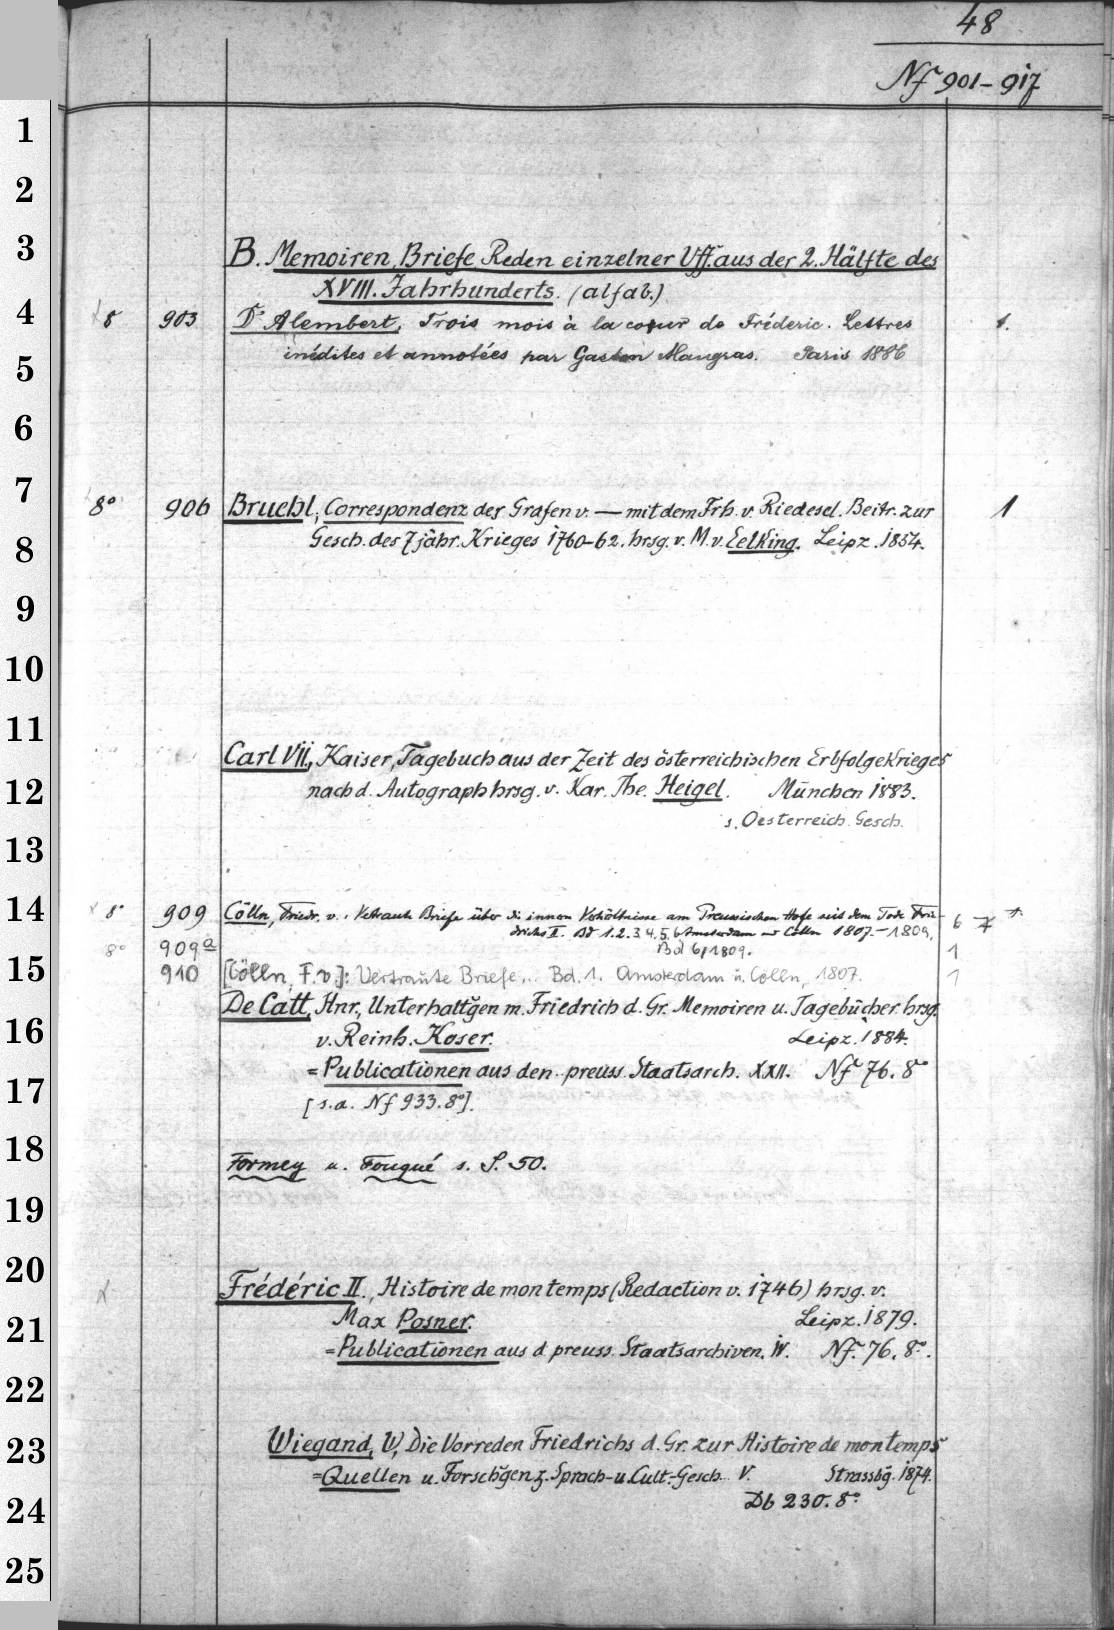 48
Nf 901-917
1
2
3
B. Memoiren, Briefe, Reden einzelner Vff. aus der 2. Hälfte des
XVIII. Jahrhunderts. (alfab.)
4
8 903 D'Alembert, Trois mois à la cour de Fréderic. Lettres 1.
inédites et annotées par Gaston Maugras. Paris 1886
5
6
7
8° 906 Bruehl, Correspondenz des Grafen v. — mit dem Frh. v. Riedesel. Beitr. zur 1
Gesch. des 7jähr. Krieges 1760-62. hrsg. v. M. v. Eelking. Leipz. 1854.
8
9
10
11
Carl VII, Kaiser, Tagebuch aus der Zeit des österreichischen Erbfolgekrieges
12
nach d. Autograph hrsg. v. Kar. The. Heigel. München 1883.
s. Oesterreich. Gesch.
13
14
8° 909 Cölln, Friedr. v., Vertraute Briefe über die innern Verhältnisse am Preussischen Hofe seit dem Tode Frie- 6
drichs II. Bd 1.2.3.4.5.6 Amsterdam u Cölln 1807.-1809.
8° 909a Bd 6, 1809. 1
15
910 [Cölln, F. v.]: Vertraute Briefe... Bd. 1. Amsterdam u. Cölln, 1807. 1
De Catt, Hnr., Unterhaltgen m. Friedrich d. Gr. Memoiren u. Tagebücher. hrsg.
16
v. Reinh. Koser. Leipz. 1884.
= Publicationen aus den preuss. Staatsarch. XXII. Nf 76. 8°
17
[s. a. Nf 933. 8°].
18
Formey u. Fouqué s. S. 50.
19
20
Frédéric II., Histoire de mon temps (Redaction v. 1746) hrsg. v.
21
Max Posner. Leipz. 1879.
= Publicationen aus d preuss. Staatsarchiven. IV. Nf. 76. 8°.
22
23
Wiegand, W, Die Vorreden Friedrichs d. Gr. zur Histoire de mon temps
= Quellen u. Forschgen z. Sprach- u. Cult.-Gesch. V. Strassbg. 1874.
24
Db 230. 8°
25